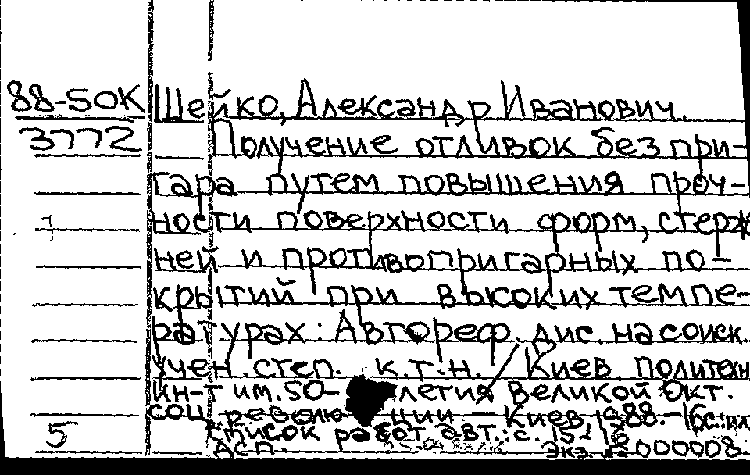 88-50К Шейко, Александр Иванович.
3772 Получение отливок без при-
гара путем повышения проч-
ности поверхности форм, стерж
ней и противопригарных по-
крытий при высоких темпе-
ратурах: Автореф. дис. на соиск.
учен. степ. к.т.н. / Киев политехн
ин-т им. 50-летия Великой Окт.
соц. революции — Киев, 1988. - 16с.:ил
5 Список работ авт.: с. 15-16
ДСП. экз. 000008.